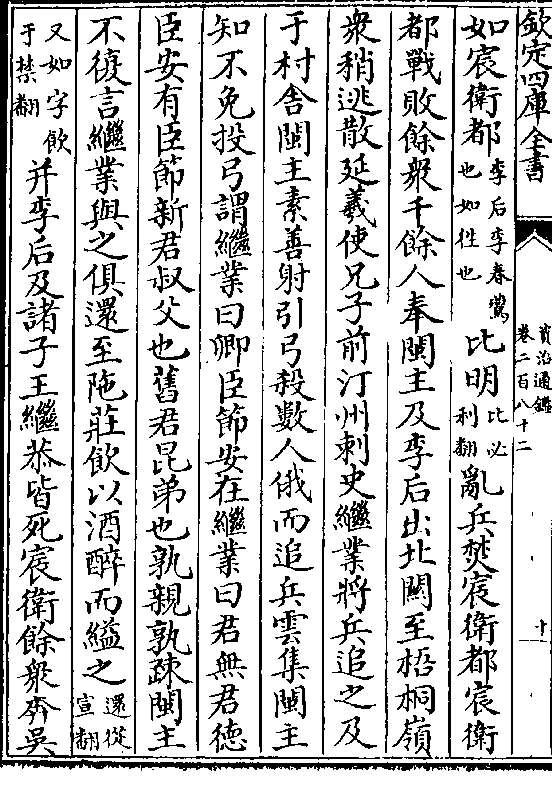 欽定四庫全書
資治通鑑
卷二百八十二
十一
如宸衛都李后李春鷰也如徃也比明比必利翻亂兵焚宸衛都宸衛
都戰敗餘衆千餘人奉閩主及李后出北關至梧桐嶺
衆稍逃散延羲使兄子前汀州刺史繼業將兵追之及
于村舍閩主素善射引弓殺數人俄而追兵雲集閩主
知不免投弓謂繼業曰卿臣節安在繼業曰君無君德
臣安有臣節新君叔父也舊君昆弟也孰親孰疎閩主
不復言繼業與之俱還至陁莊飲以酒醉而縊之還從宣翻
又如字飲于禁翻并李后及諸子王繼恭皆死宸衛餘衆奔吳